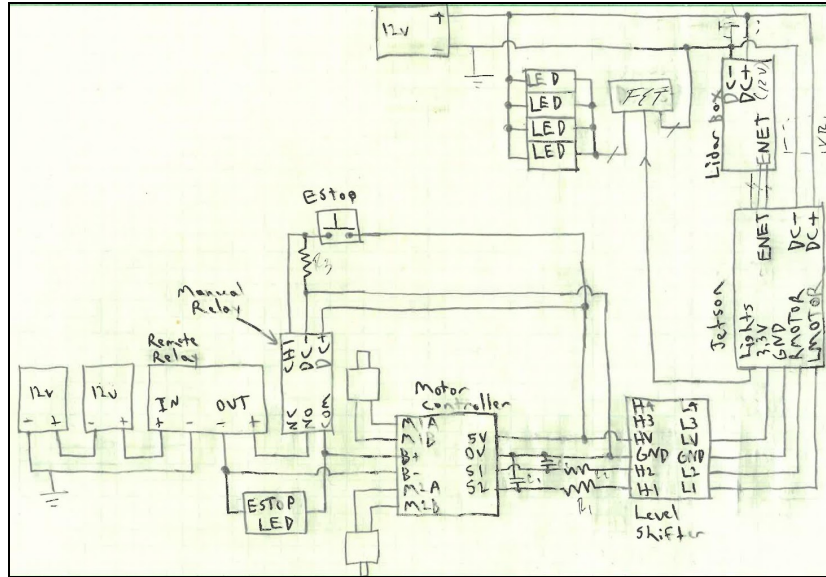 12v + -
LED
LED
LED
LED
FET
DC- DC+ (12V)
ENET
Lidar Box
EStop
R3
Manual
Relay
Remote
Relay
CH1 DC- DC+
NC NO COM
12v
- +
12v
- +
IN OUT
+ - - +
ESTOP
LED
Motor
Controller
M1A
M1B
B+
B-
M2A
M2B
5V
0V
S1
S2
R1
H4 L4
H3 L3
HV LV
GND GND
H2 L2
H1 L1
Level
Shifter
Jetson
ENET DC- DC+
Lights
3.3V
GND
RMOTOR
LMOTOR